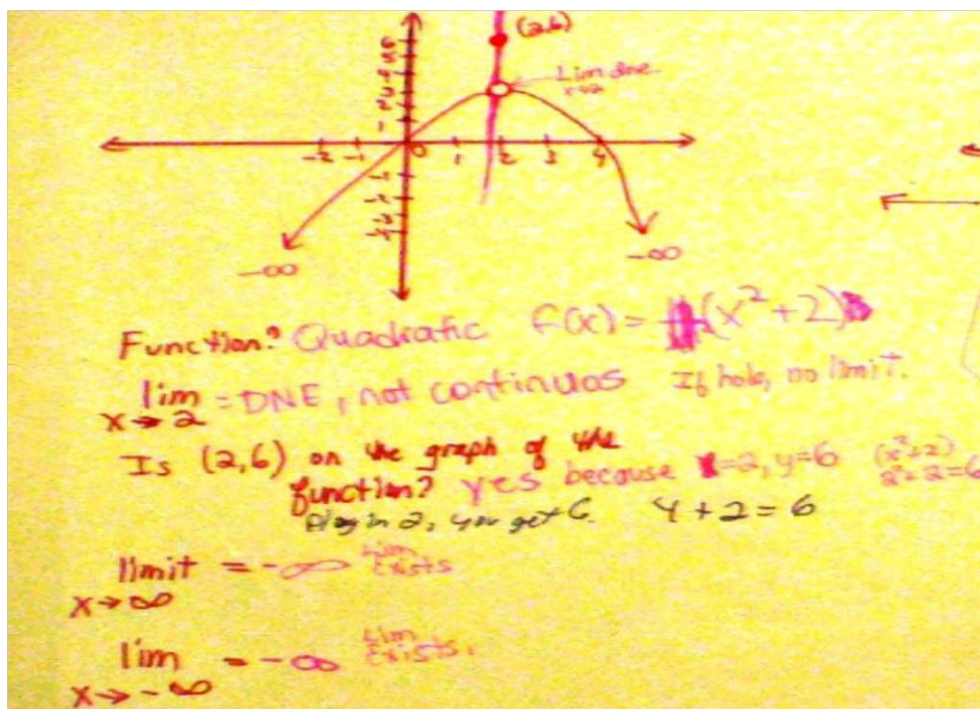 (2,6)
Lim dne
x→2
-2 -1 0 1 2 3 4
-∞ -∞
Function? Quadratic f(x) = (x²+2)
lim = DNE, not continuos If hole, no limit.
x→2
Is (2,6) on the graph of the
function? yes because x=2, y=6 (x²+2)
2²+2=6
Plug in 2, you get 6. 4+2=6
limit = -∞ Lim Exists
x→∞
lim = -∞ Lim Exists.
x→-∞